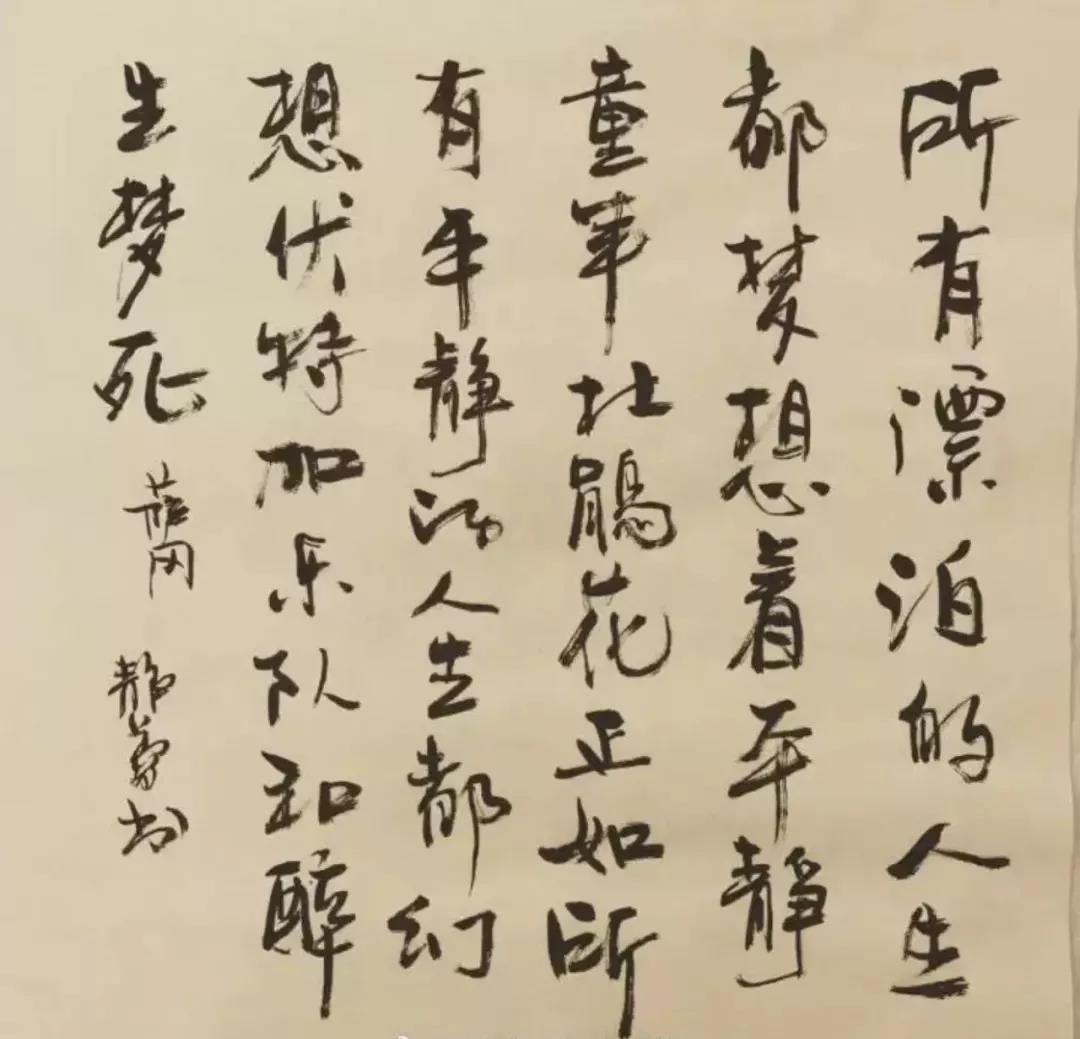 所有漂泊的人生
都梦想着平静
童年杜鹃花正如所
有平静的人生都幻
想伏特加乐队和醉
生梦死 萨冈 静书